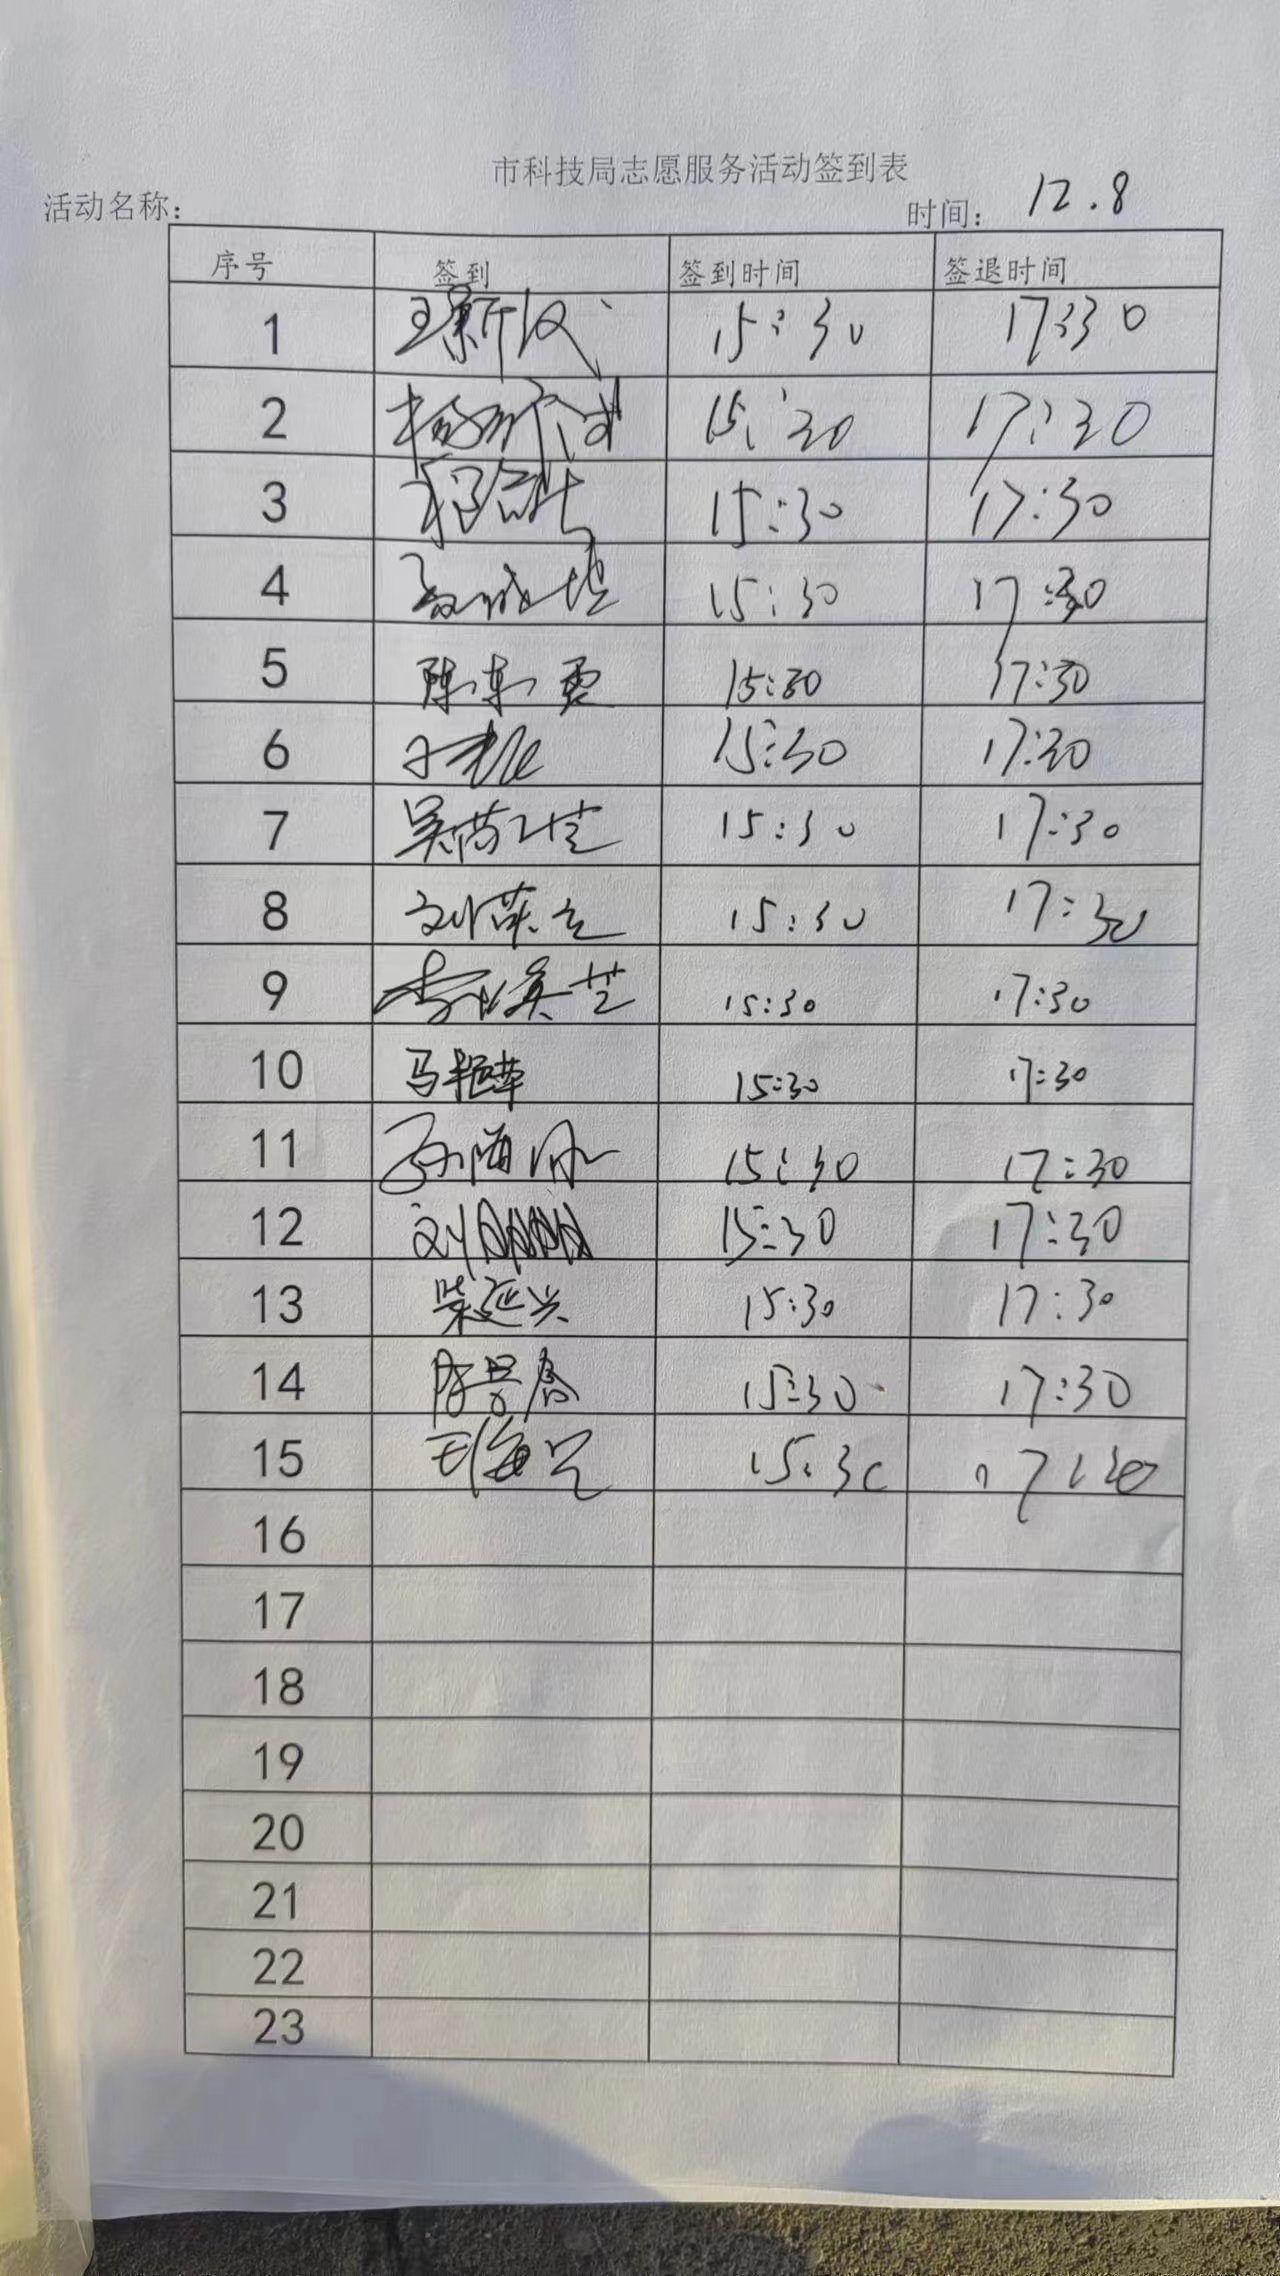 市科技局志愿服务活动签到表
活动名称： 时间： 12.8
序号 签到 签到时间 签退时间
1 15:30 17:30
2 15:30 17:30
3 15:30 17:30
4 15:30 17:30
5 陈东霞 15:30 17:30
6 15:30 17:30
7 15:30 17:30
8 15:30 17:30
9 15:30 17:30
10 马艳苹 15:30 17:30
11 15:30 17:30
12 刘 15:30 17:30
13 柴延兴 15:30 17:30
14 15:30 17:30
15 15:30 17:30
16
17
18
19
20
21
22
23